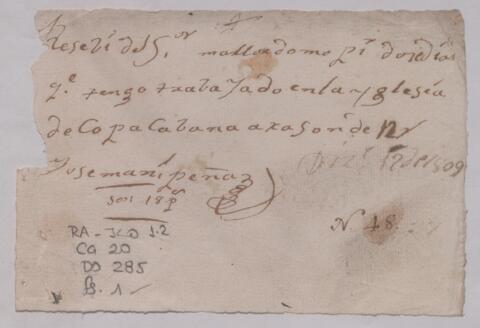 Resebi del S.or mallordomo p.r dose dias
q.e tengo trabajado en la yglesia
de Copacabana a rason de 12 r
Jose man.l peña
son 18 p.s
Di.e 17 de 1809
N. 48
RA-JCD 1.2
CG 20
DO 285
fs. 1